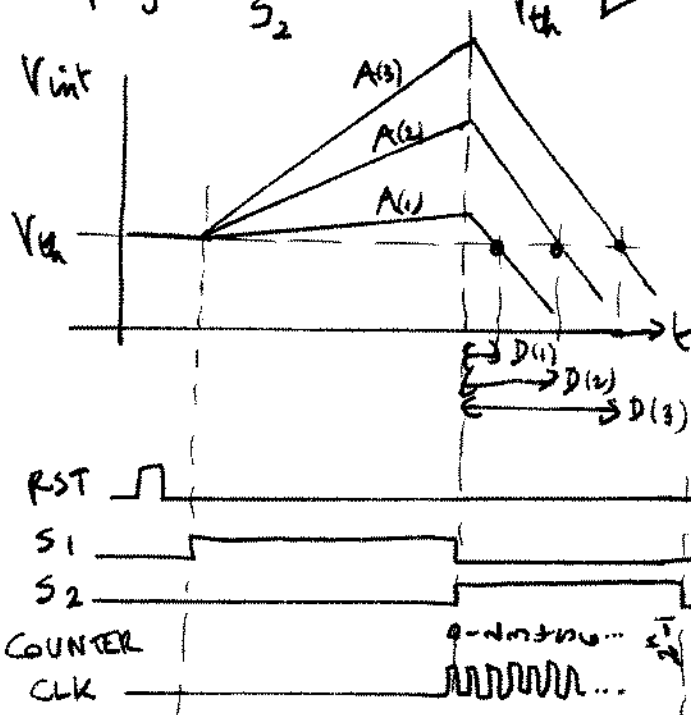 S2
Vth
Vint
A(3)
A(2)
A(1)
Vth
t
D(1)
D(2)
D(3)
RST
S1
S2
COUNTER
CLK
...